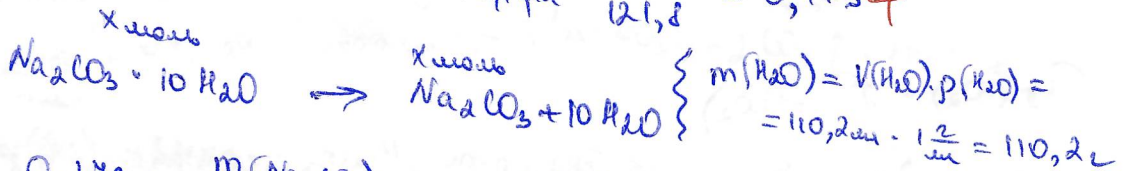 121,8
x моль
Na₂CO₃ · 10 H₂O → x моль
Na₂CO₃ + 10 H₂O } m(H₂O) = V(H₂O)·ρ(H₂O) =
= 110,2 мл · 1 г/мл = 110,2 г